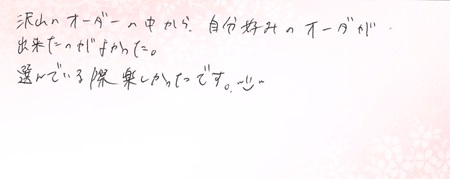 沢山のオーダーの中から、自分好みのオーダが
出来たのがよかった。
選んでいる際楽しかったです。